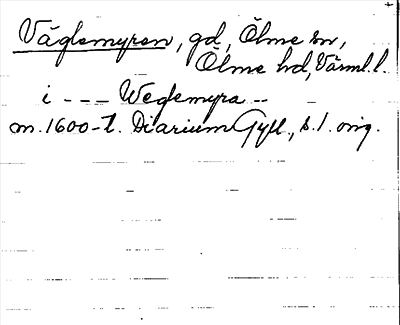 Väglemyren, gd, Ölme sn,
Ölme hd, Värml. l.
i --- Weglemyra --
m. 1600-t. Diarium Gyll., s. 1. orig.